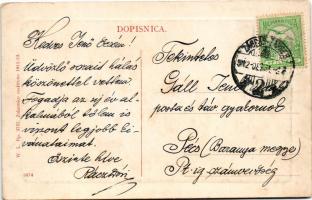 DOPISNICA.
Kedves Jenő öcsém!
Üdvözlő sorait hálás
köszönettel vettem.
Fogadja az uj év al-
kalmából tőlem is
viszont legjobb ki-
vánataimat.
Szinte hive
Tekintetes
Gáll Jenő
posta és táv gyakornok
Pécs (Baranya megye)
P. ig. számvevőség